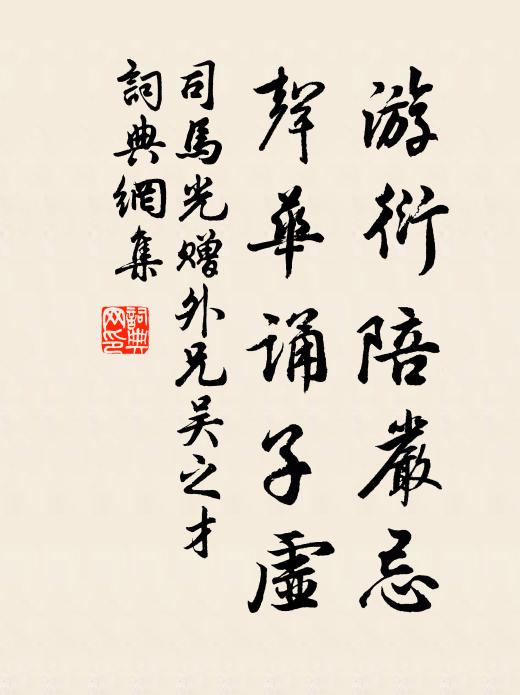 游衍陪嚴忌
聲華誦子虛
司馬光赠外兄吴之才
詞典網集
詞典
网印